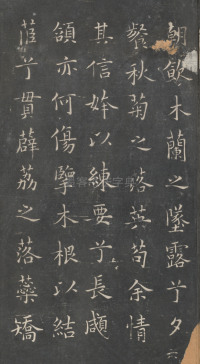 朝飲木蘭之墜露兮夕
餐秋菊之落英苟余情
其信姱以練要兮長顑
頷亦何傷擥木根以結
茝兮貫薜荔之落蘂矯